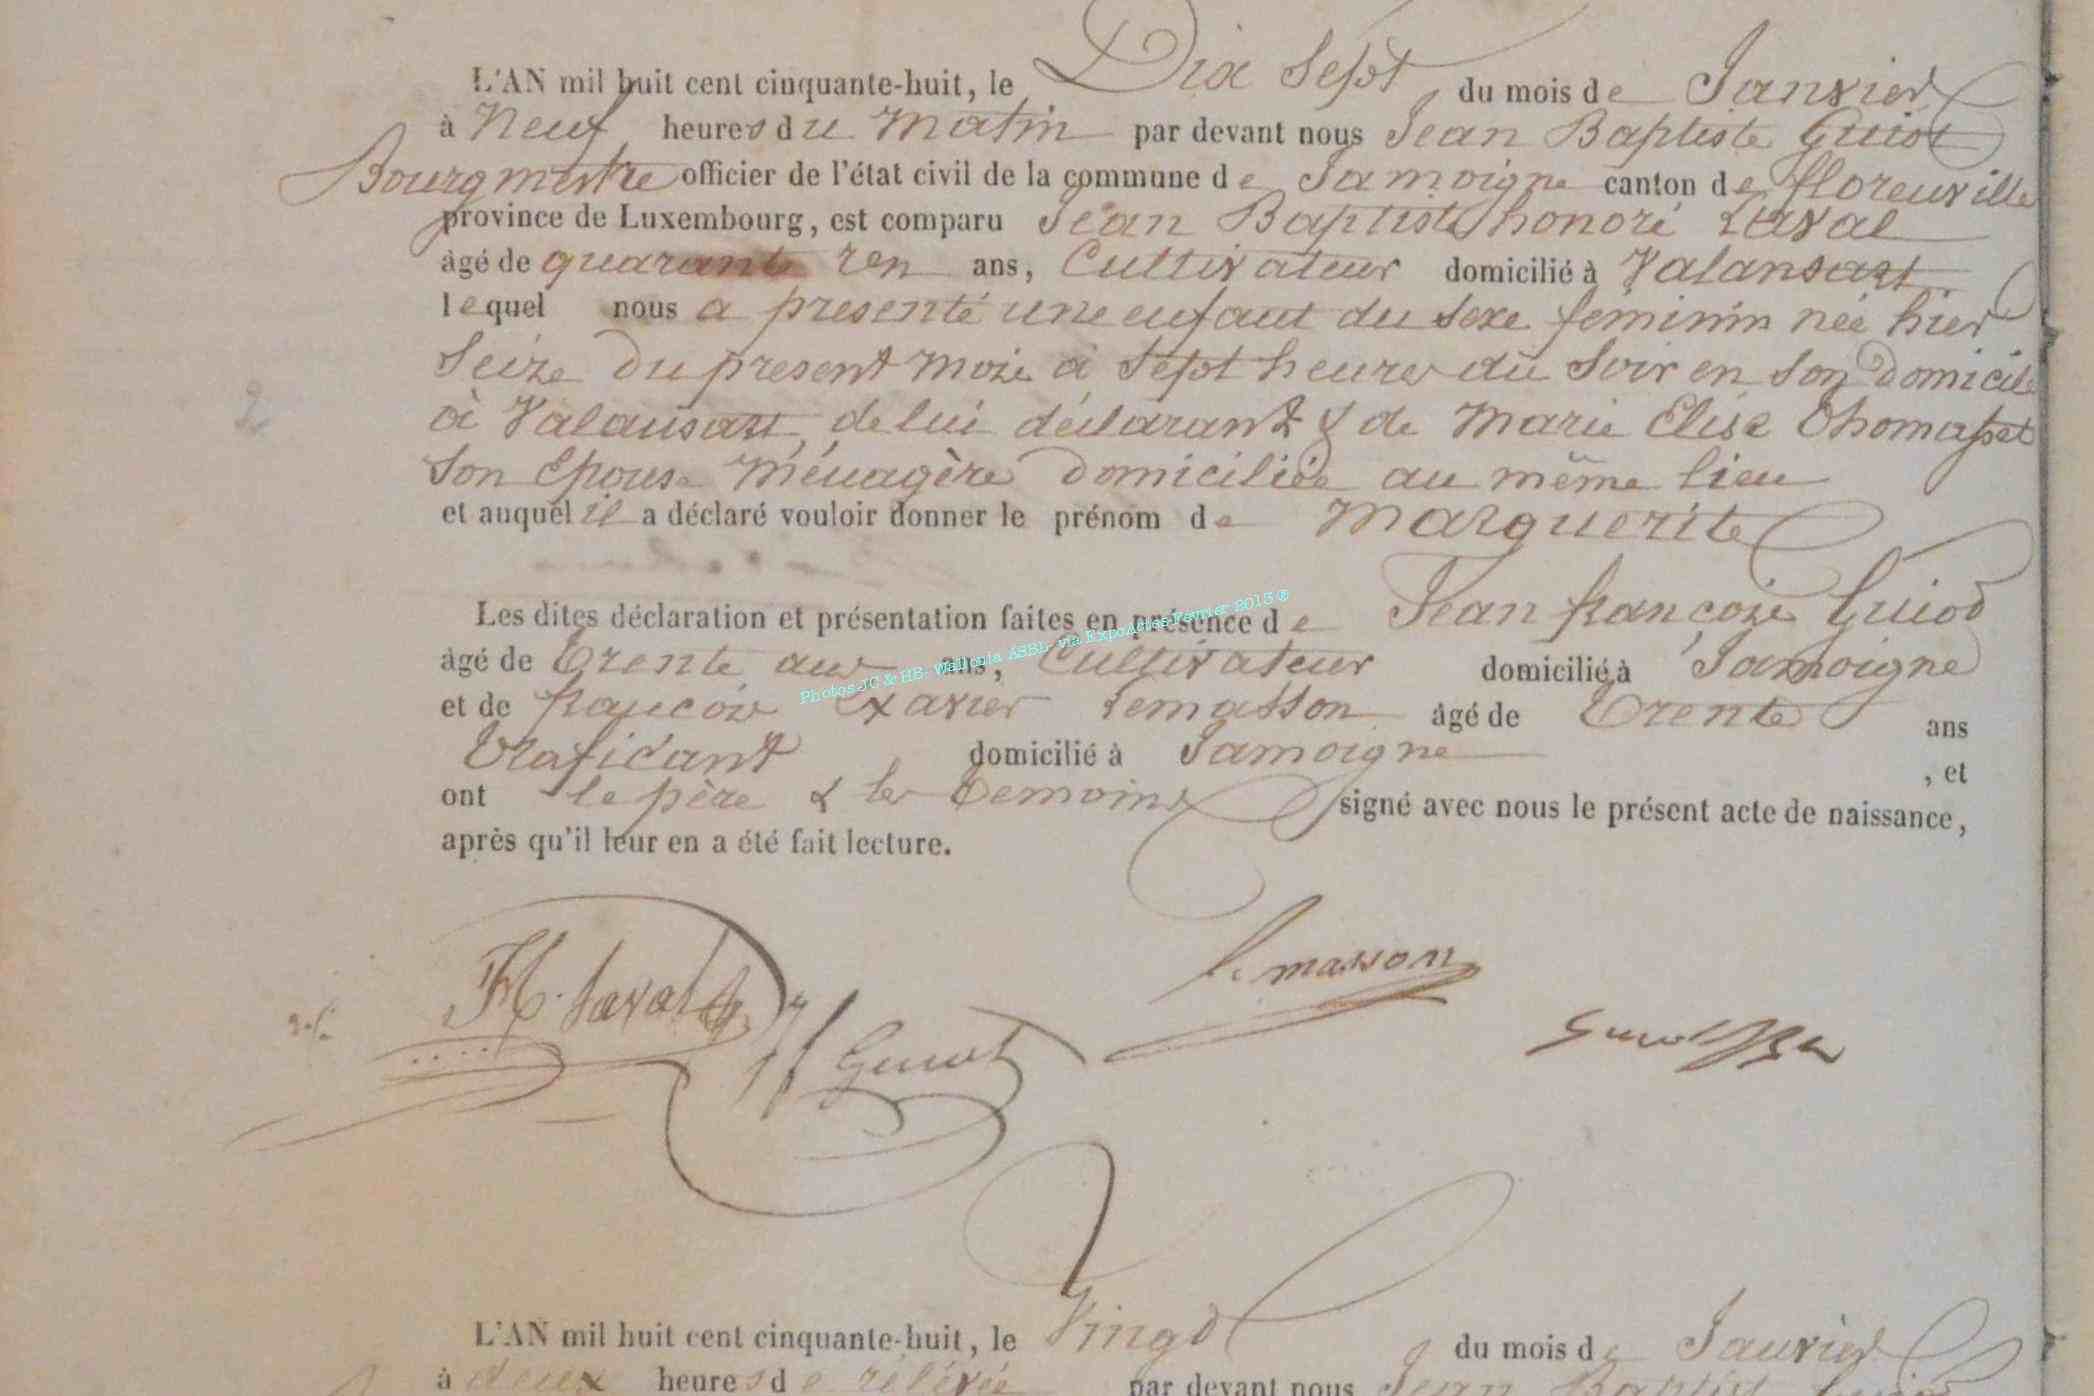 L'AN mil huit cent cinquante-huit, le Dix Sept du mois de Janvier
à Neuf heures du Matin par devant nous Jean Baptiste Guiot
Bourgmestre officier de l'état civil de la commune de Jamoigne canton de florenville
province de Luxembourg, est comparu Jean Baptiste honoré Laval
âgé de quarante ans, Cultivateur domicilié à Valansart
lequel nous a presenté une enfant du sexe feminin née hier
Seize du present mois à Sept heures du Soir en son domicile
à Valansart, de lui déclarant & de Marie Elise Thomasset
son Epouse Ménagère domiciliée au même lieu
et auquel il a déclaré vouloir donner le prénom de Marguerite
Les dites déclaration et présentation faites en présence de Jean françois Guiot
âgé de trente ans, Cultivateur domicilié à Jamoigne
et de françois Xavier Lemasson âgé de trente ans
traficant domicilié à Jamoigne , et
ont le père & les temoins signé avec nous le présent acte de naissance,
après qu'il leur en a été fait lecture.
Photos JC & HB- Wallonia ASBL- via ExpoActes-Fevrier 2015 ®
2
H. Laval
Lemasson
Guiot
Guiot JB
L'AN mil huit cent cinquante-huit, le Vingt du mois de Janvier
à deux heures de rélévée par devant nous Jean Baptist